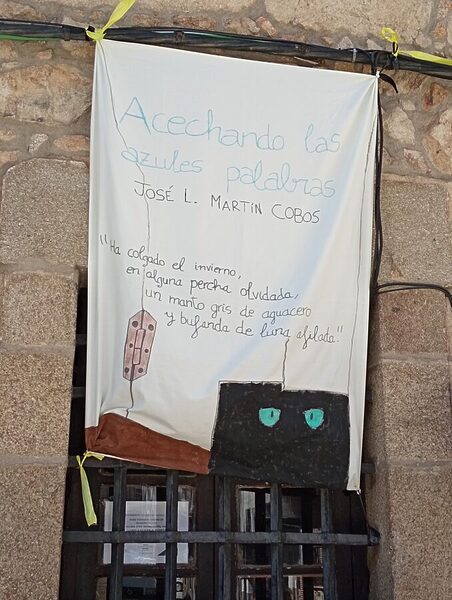 Acechando las
azules palabras
JOSÉ L. MARTÍN COBOS
"Ha colgado el invierno,
en alguna percha olvidada,
un manto gris de aguacero
y bufanda de luna afilada."